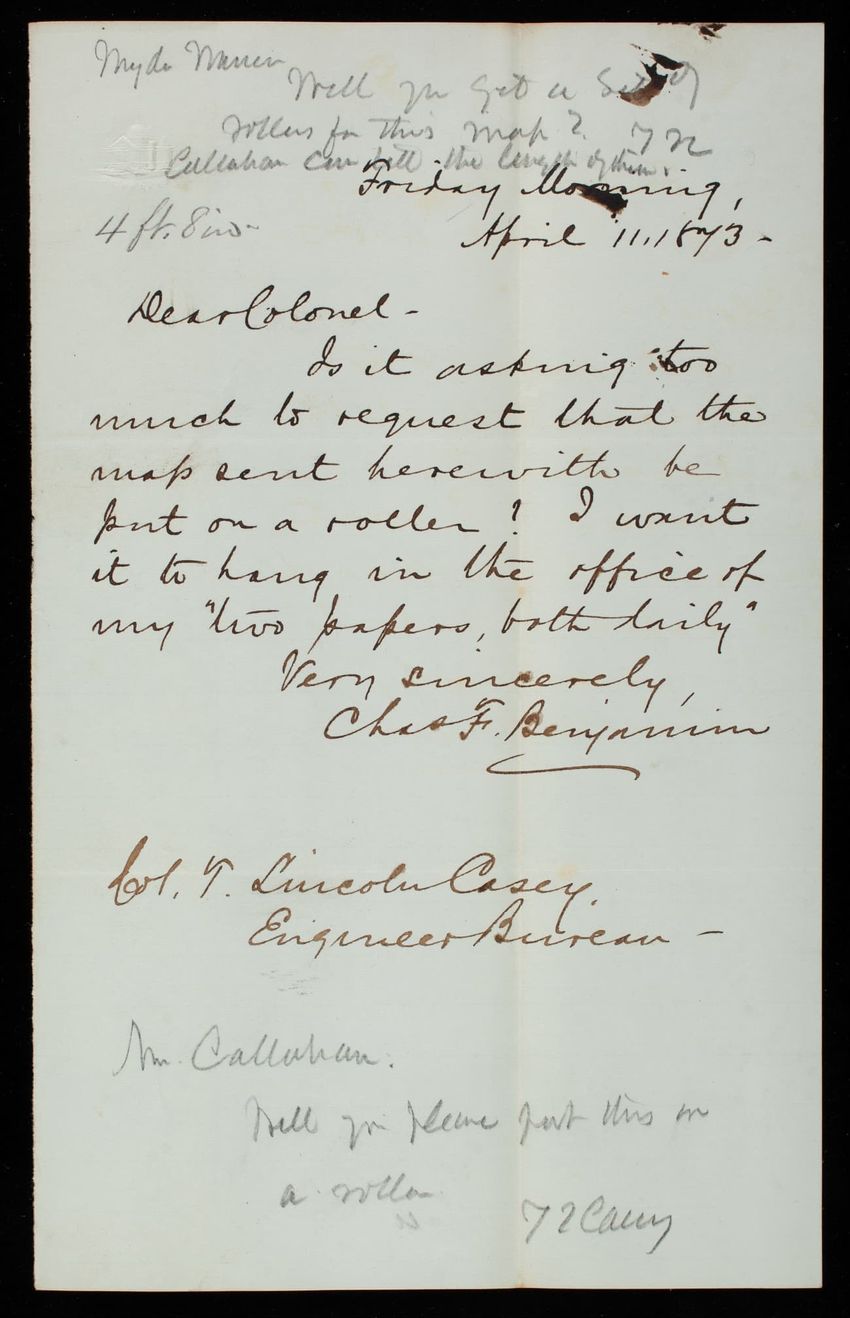 My dr Warren
Will you get a set of
rollers for this map?
Callahan can tell the length of them.
Friday Morning,
4 ft. 8 ins-
April 11, 1873-
Dear Colonel-
Is it asking too
much to request that the
map sent herewith be
put on a roller? I want
it to hang in the office of
my "two papers, both daily"
Very sincerely,
Chas F. Benjamin
Col. T. Lincoln Casey,
Engineer Bureau-
Mr. Callahan.
Will you please put this on
a roller
T L Casey